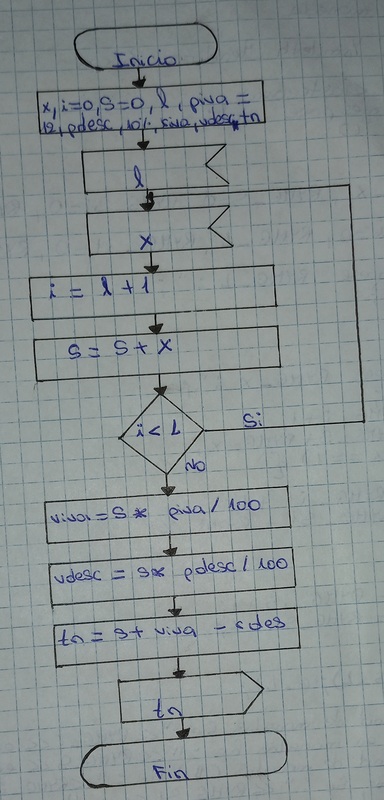 Inicio
x, i=0, S=0, l, piva =
12, pdesc, 10%, siva, vdesc, tn
l
x
i = l + 1
S = S + x
i < L
Si
No
viva = S * piva / 100
vdesc = S * pdesc / 100
tn = S + viva - cdes
tn
Fin